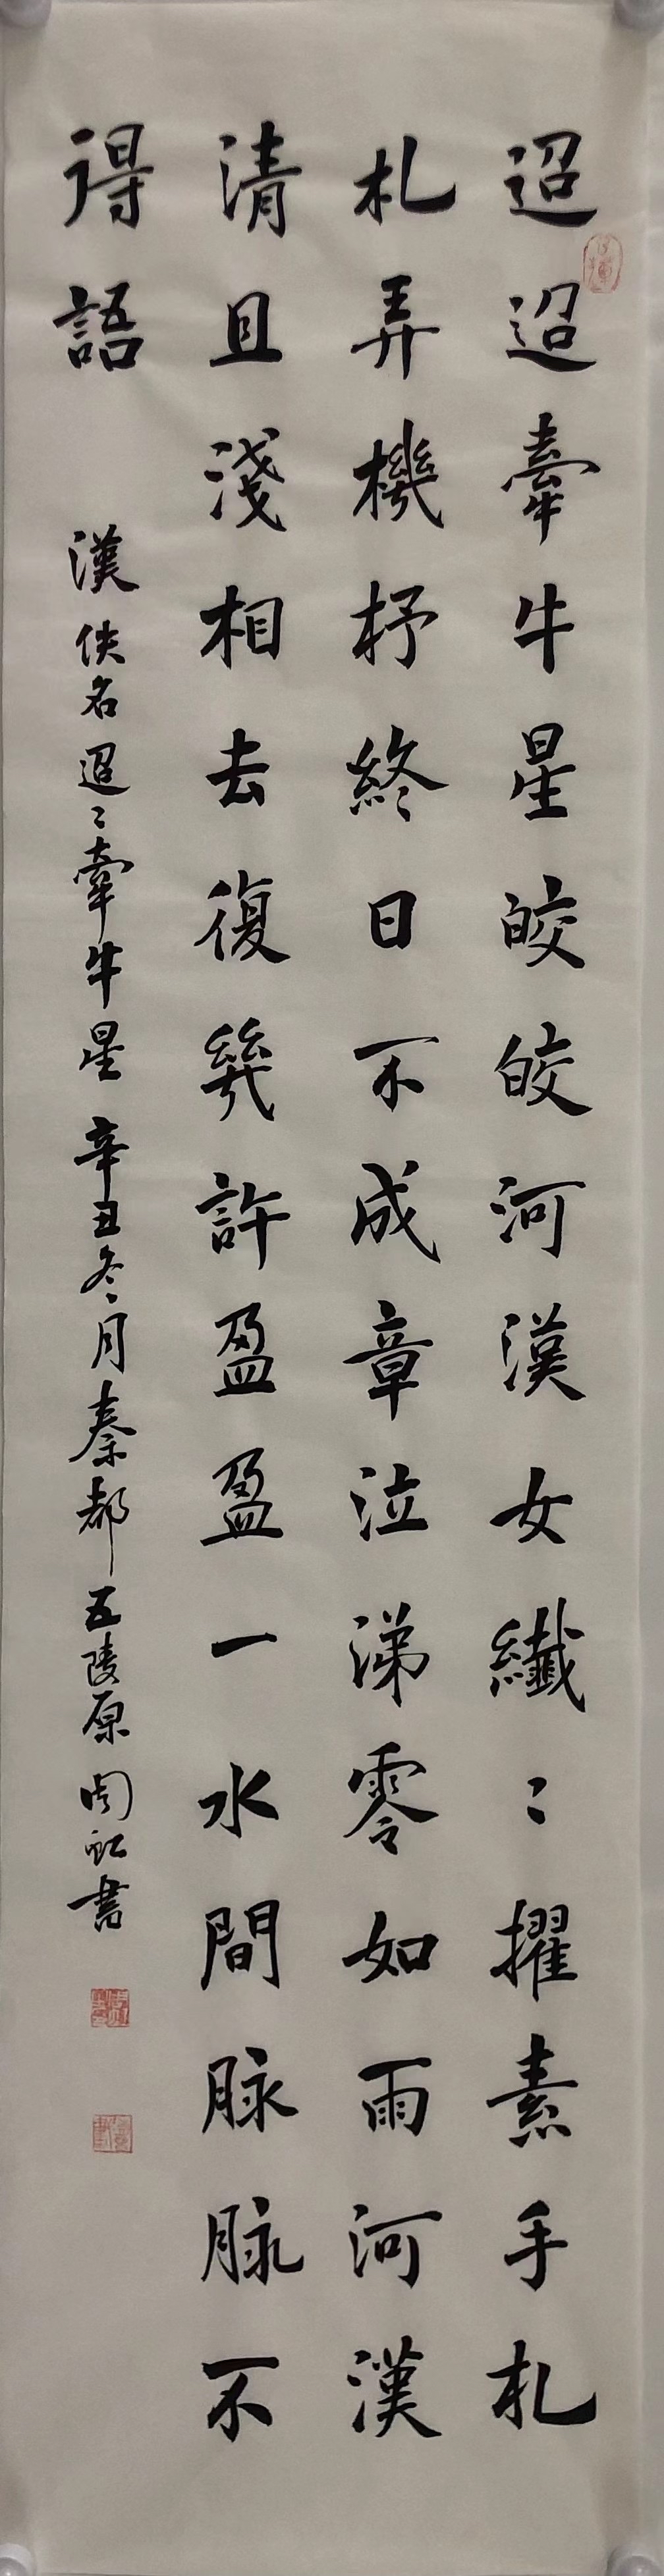 迢迢牽牛星皎皎河漢女纖〻擢素手札
札弄機杼終日不成章泣涕零如雨河漢
清且淺相去復幾許盈盈一水間脉脉不
得語
漢佚名迢〻牽牛星辛丑冬月秦都五陵原周虹書